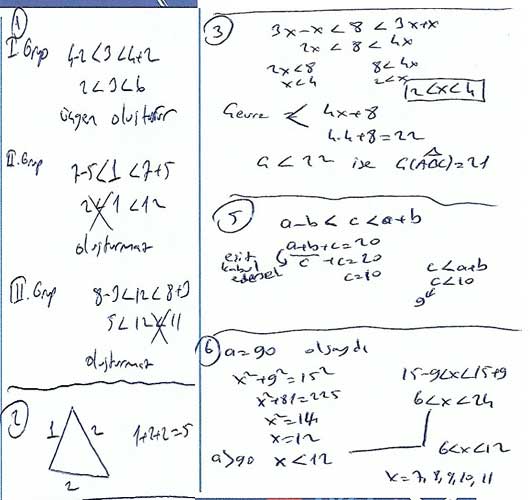 1
I. Grup 4-2<3<4+2
2<3<6
üçgen oluşturur
II. Grup 7-5<1<7+5
2<1<12
oluşturmaz
III. Grup 8-3<12<8+3
5<12<11
oluşturmaz
2
1 2 2
1+2+2=5
3
3x-x<8<3x+x
2x<8<4x
2x<8 8<4x
x<4 2<x
2<x<4
Çevre < 4x+8
4.4+8=22
a<22 ise Ç(ABC)=21
5
a-b<c<a+b
a+b+c=20
eşit kabul edersek
c+c=20
c=10
c<a+b
c<10
9
6 a=90 olsaydı
x²+9²=15²
x²+81=225
x²=144
x=12
a>90 x<12
15-9<x<15+9
6<x<24
6<x<12
x=7,8,9,10,11